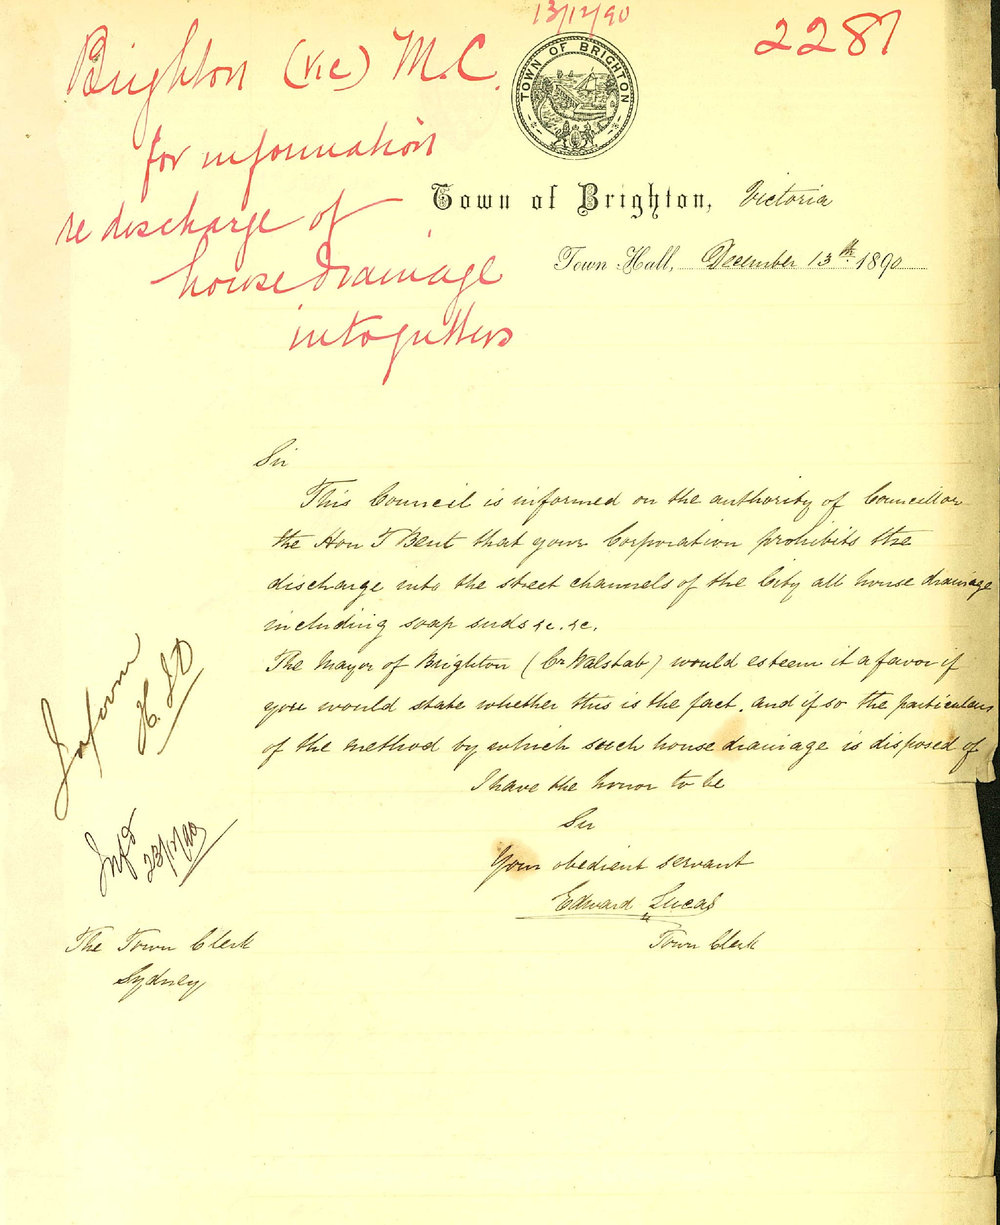 13/12/90
2287
Brighton (Vic) M.C.
for information
re discharge of
house drainage
into gutters
TOWN OF BRIGHTON
Town of Brighton, Victoria
Town Hall, December 13th 1890
Sir
This Council is informed on the authority of Councillor
the Hon T Bent that your Corporation prohibits the
discharge into the street channels of the City all house drainage
including soap suds &c. &c.
The Mayor of Brighton (Cr Walstab) would esteem it a favor if
you would state whether this is the fact, and if so the particulars
of the method by which such house drainage is disposed of
I have the honor to be
Sir
Your obedient servant
Edward Lucas
Town Clerk
Inform
Infd
23/12/90
The Town Clerk
Sydney